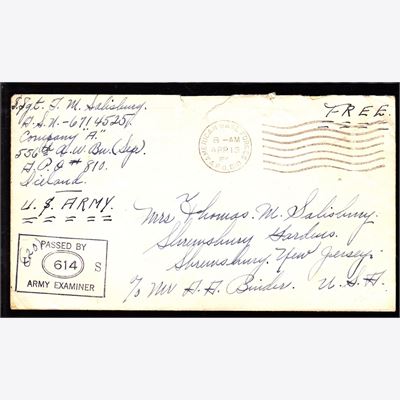 S.Sgt. T. M. Salisbury.
A.S.N.-6714525.
Company "A."
556th A.W. Bn. (Sep).
A.P.O # 810.
Iceland.
U.S. ARMY.
8-AM
APR 15
A.P.O.
FREE.
Mrs Thomas. M. Salisbury.
Shrewsbury Gardens.
Shrewsbury. New Jersey.
c/o Mr A. A. Binder. U.S.A.
PASSED BY
614 S
ARMY EXAMINER